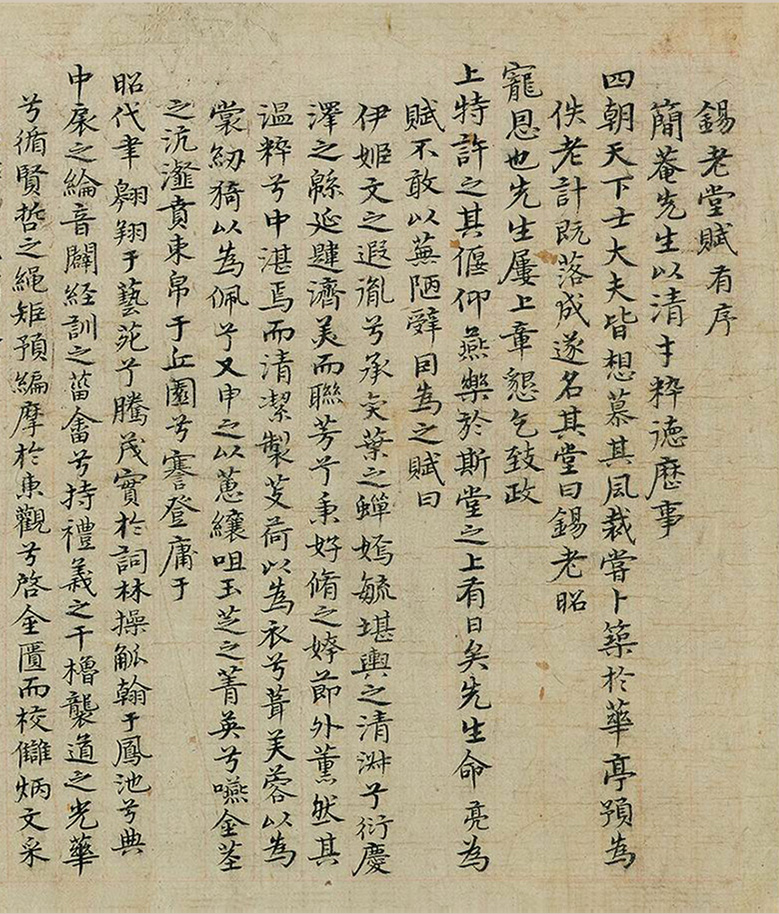 錫老堂賦有序
簡菴先生以清才粹德歷事
四朝天下士大夫皆想慕其風裁嘗卜築於華亭預為
佚老計既落成遂名其堂曰錫老昭
寵恩也先生屢上章懇乞致政
上特許之其偃仰燕樂於斯堂之上有日矣先生命亮為
賦不敢以蕪陋辭囙為之賦曰
伊姬文之遐胤兮承奕葉之蟬嫣毓堪輿之清淑兮衍慶
澤之緜延肆濟美而聯芳兮秉好脩之姱節外薰然其
溫粹兮中湛焉而清潔製芰荷以為衣兮葺芙蓉以為
裳紉猗以為佩兮又申之以蕙纕咀玉芝之菁英兮嚥金莖
之沆瀣賁束帛于丘園兮謇登庸于
昭代聿翱翔于藝苑兮騰茂實於詞林操觚翰于鳳池兮典
中扆之綸音闢經訓之菑畬兮持禮義之干櫓襲道之光華
兮循賢哲之繩矩預編摩於東觀兮啓金匱而校讎炳文采